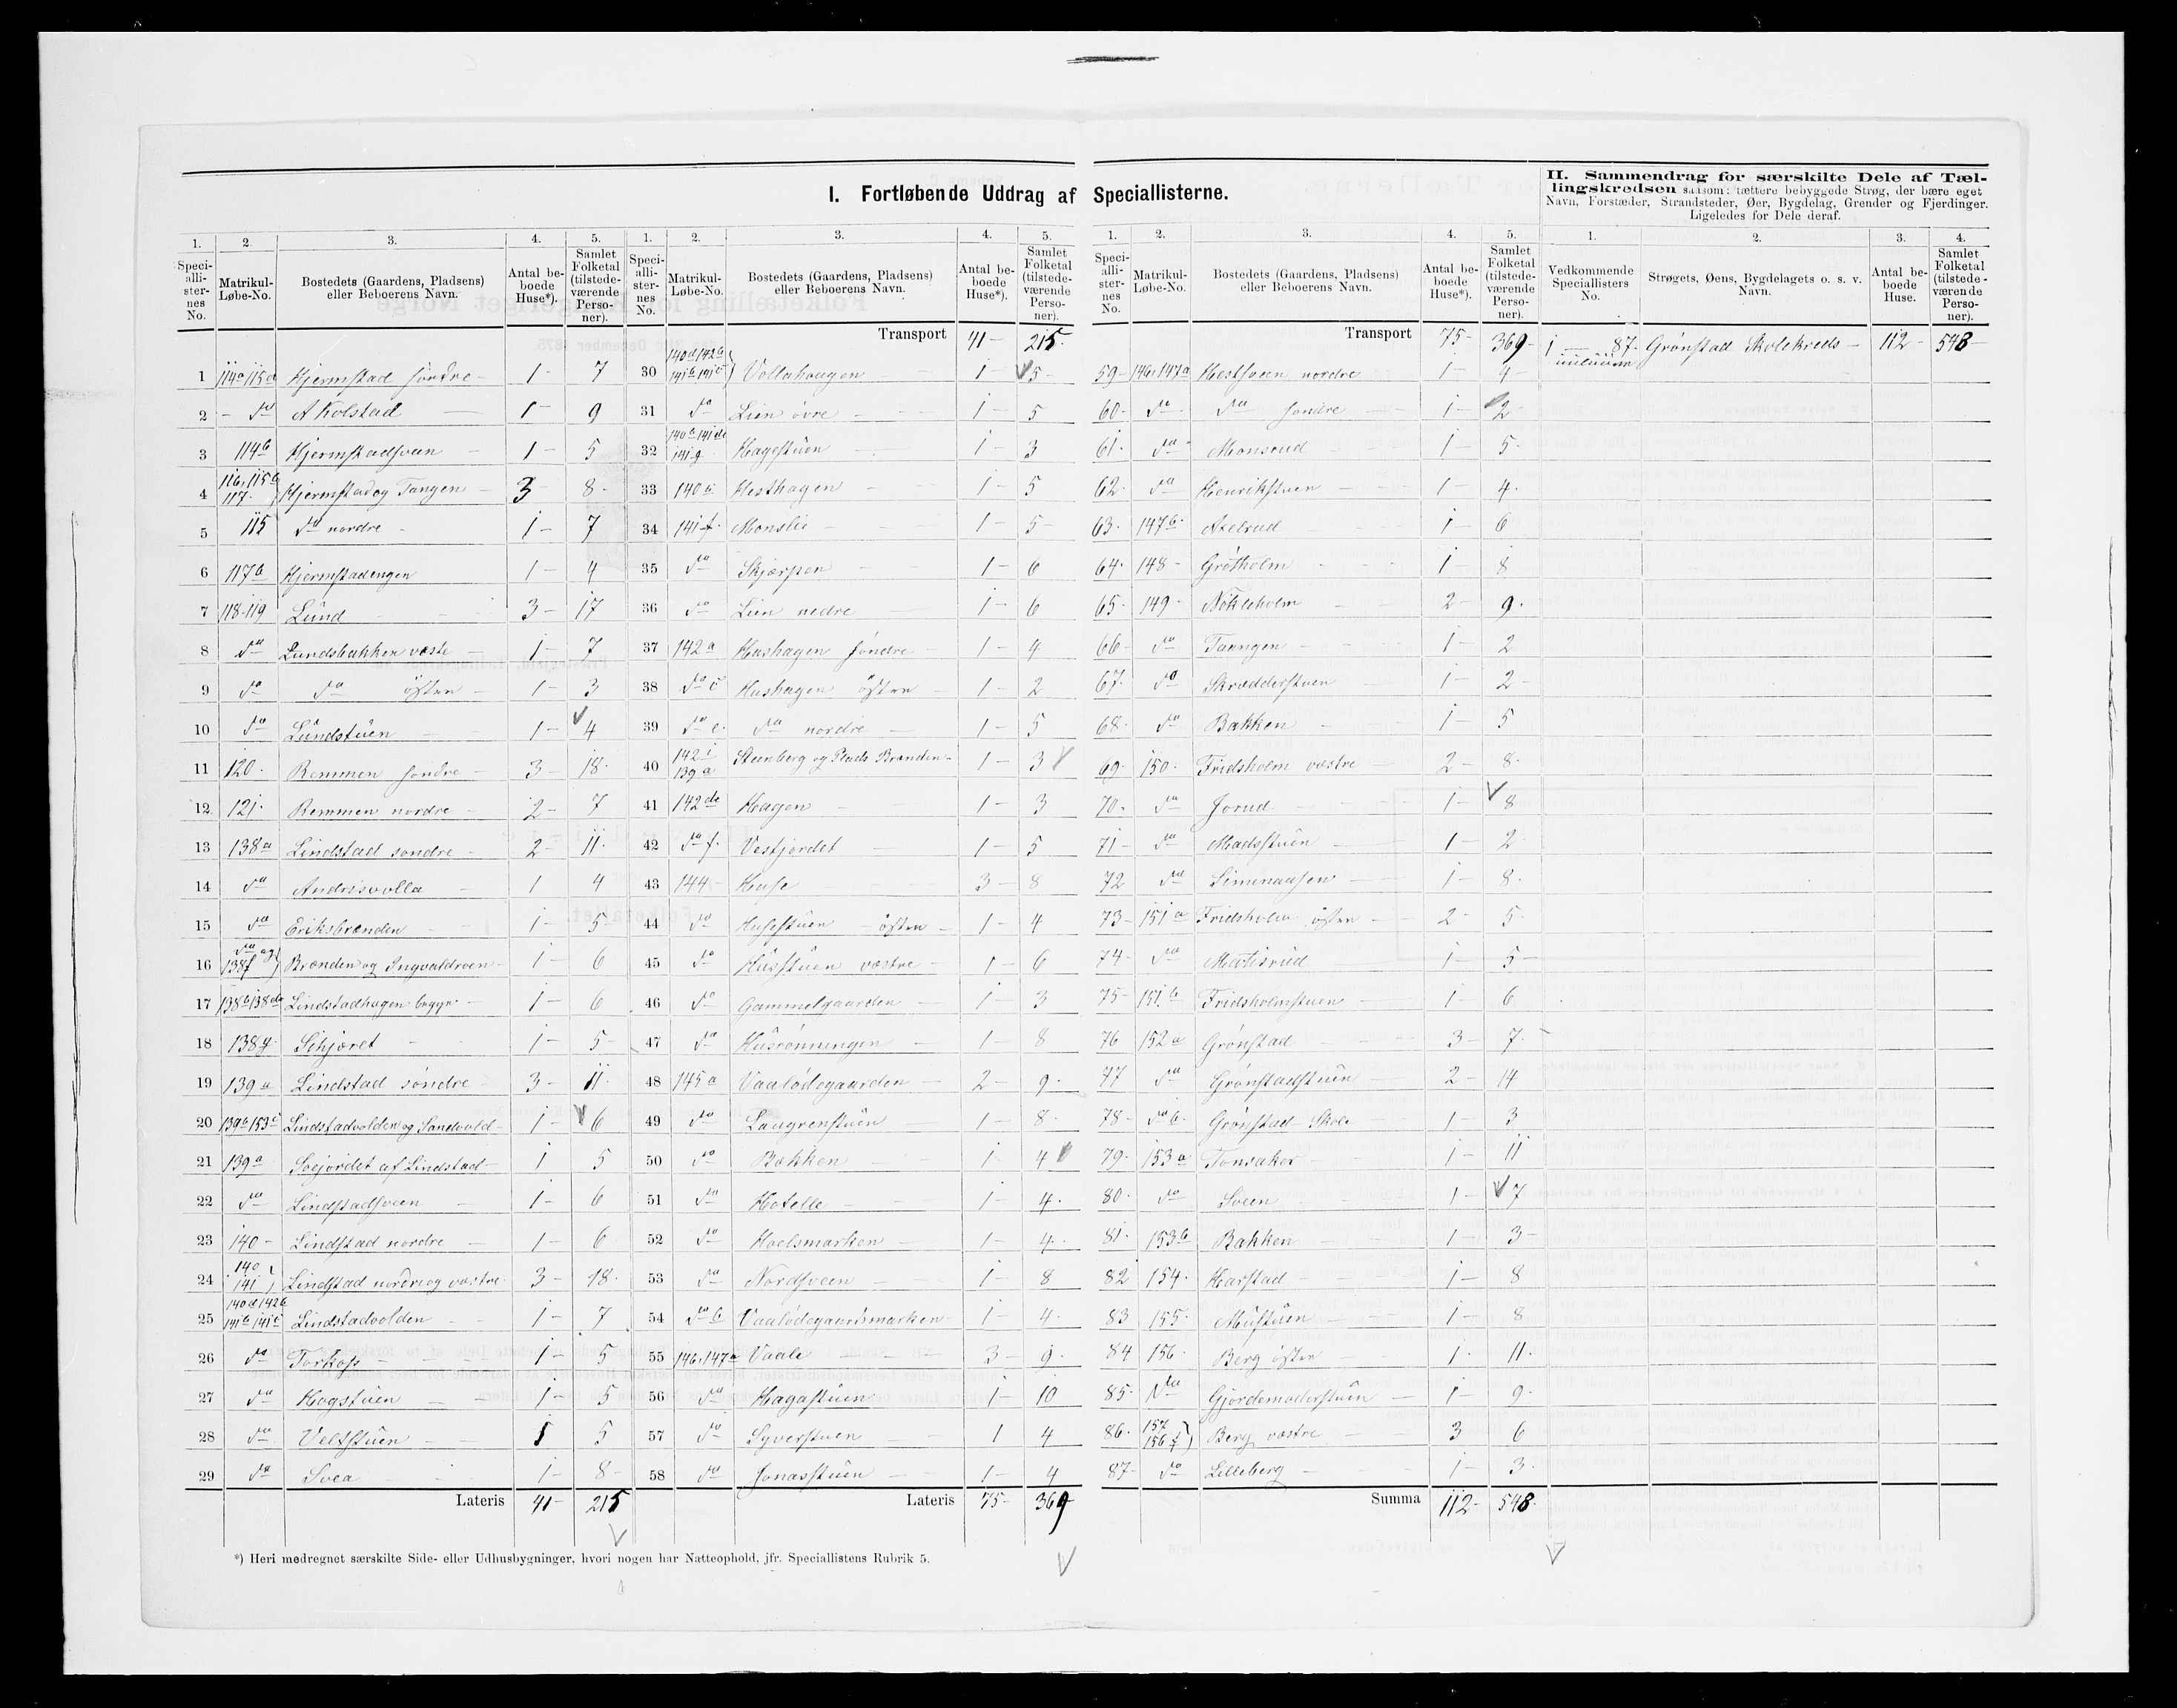 I. Fortløbende Uddrag af Speciallisterne.
1. 2. 3. 4. 5.
Specialli-sternes No. Matrikul-Løbe-No. Bostedets (Gaardens, Pladsens) eller Beboerens Navn. Antal beboede Huse*). Samlet Folketal (tilstedeværende Personer).
1 114a 115a Hjermstad søndre 1 7
2 do A Kolstad 1 9
3 114b Hjermstadsveen 1 5
4 116, 115b 117 Hjermstad og Tangen 3 8
5 115 do nordre 1 7
6 117b Hjermstadengen 1 4
7 118-119 Lund 3 17
8 do Lundsbakken væstre 1 7
9 do do østen 1 3
10 do Lundstuen 1 4
11 120 Remmen søndre 3 18
12 121 Remmen nordre 2 7
13 138a Lindstad søndre 2 11
14 do Andrisvolla 1 4
15 do Eriksbrænden 1 5
16 do og 138f Brænden og Ingvaldroen 1 6
17 138b 138de Lindstadhagen 1 6
18 138g Schjøret 1 5
19 139a Lindstad søndre 3 11
20 139b 153c Lindstadvolden og Sandvold 1 6
21 139a Soejordet af Lindstad 1 5
22 do Lindstadsveen 1 6
23 140 Lindstad nordre 1 6
24 140 141 Lindstad nordre og væstre 3 18
25 140d 142b 141b 141c Lindstadvolden 1 7
26 do Torkop 1 5
27 do Hagstuen 1 5
28 do Veltstuen 1 5
29 do Svea 1 8
Lateris 41 215
1. 2. 3. 4. 5.
Specialli-sternes No. Matrikul-Løbe-No. Bostedets (Gaardens, Pladsens) eller Beboerens Navn. Antal beboede Huse*). Samlet Folketal (tilstedeværende Personer).
Transport 41 215
30 140d 142b 141b 141c Vollahaugen 1 5
31 do Lien øvre 1 5
32 140b 141de 141g Hagestuen 1 3
33 140c Hesthagen 1 5
34 141f Monslie 1 5
35 do Skjærpen 1 6
36 do Lien nedre 1 6
37 142a Hushagen søndre 1 4
38 do c Hushagen østen 1 2
39 do e do nordre 1 5
40 142i 139a Steenberg og Plads Brænden 1 3
41 142de Hagen 1 3
42 do f Vestjordet 1 5
43 144 Huse 3 8
44 do Husestuen østen 1 4
45 do Husstuen væstre 1 6
46 do Gammelgaarden 1 3
47 do Husrønningen 1 8
48 145a Vaalødegaarden 2 9
49 do Laugrenstuen 1 8
50 do Bakken 1 4
51 do Hotelle 1 4
52 do Hoelsmarken 1 4
53 do Nordsveen 1 8
54 do b Vaalødegaardsmarken 1 4
55 146, 147a Vaale 3 9
56 do Hagastuen 1 10
57 do Syverstuen 1 4
58 do Jonasstuen 1 4
Lateris 75 369
1. 2. 3. 4. 5.
Specialli-sternes No. Matrikul-Løbe-No. Bostedets (Gaardens, Pladsens) eller Beboerens Navn. Antal beboede Huse*). Samlet Folketal (tilstedeværende Personer).
Transport 75 369
59 146, 147a Hestsveen nordre 1 4
60 do do søndre 1 2
61 do Monsrud 1 5
62 do Henrikstuen 1 4
63 147b Axelrud 1 6
64 148 Grøtholm 1 8
65 149 Nøkleholm 2 9
66 do Taangen 1 2
67 do Skrædderstuen 1 2
68 do Bakken 1 5
69 150 Fridsholm væstre 2 8
70 do Jorud 1 8
71 do Madsstuen 1 2
72 do Simenausen 1 8
73 151a Fridsholm østen 2 5
74 do Matisrud 1 5
75 151b Fridsholmstuen 1 6
76 152a Grønstad 3 7
77 do Grønstadstuen 2 14
78 do b Grønstad Skole 1 3
79 153a Tonsaker 1 11
80 do Sveen 1 7
81 153b Bakken 1 3
82 154 Harstad 1 8
83 155 Mustuen 1 8
84 156 Berg østen 1 11
85 do Gjordemoderstuen 1 9
86 157 156f Berg væstre 3 6
87 do Lilleberg 1 3
Summa 112 548
II. Sammendrag for særskilte Dele af Tællingskredsen saasom: tættere bebyggede Strøg, der bære eget Navn, Forstæder, Strandsteder, Øer, Bygdelag, Grender og Fjerdinger. Ligeledes for Dele deraf.
1. 2. 3. 4.
Vedkommende Speciallisters No. Strøgets, Øens, Bygdelagets o. s. v. Navn. Antal beboede Huse. Samlet Folketal (tilstedeværende Personer).
1 — 87 Grønstad Skolekreds 112 548
*) Heri medregnet særskilte Side- eller Udhusbygninger, hvori nogen har Natteophold, jfr. Speciallistens Rubrik 5.